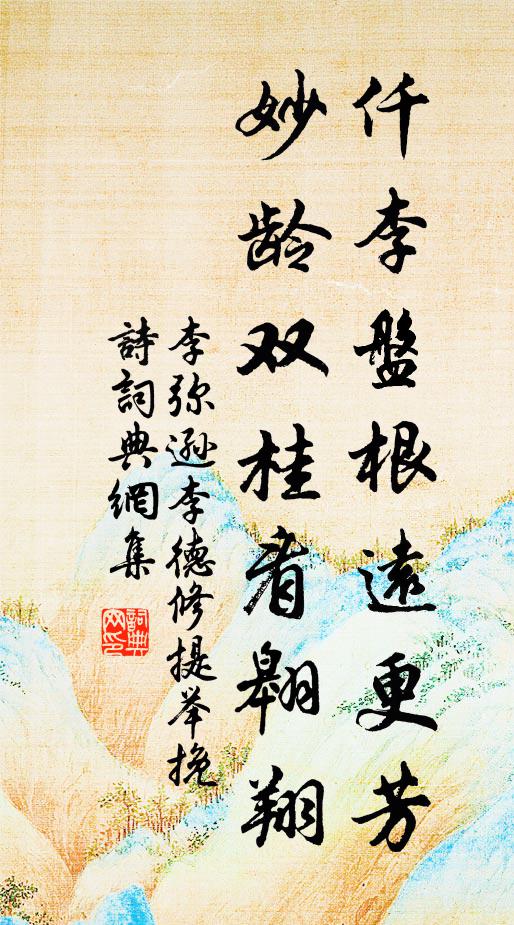 仟李盤根遠更芳
妙龄双桂看翱翔
李弥遜李德修提举挽
詩詞典網集
詞典